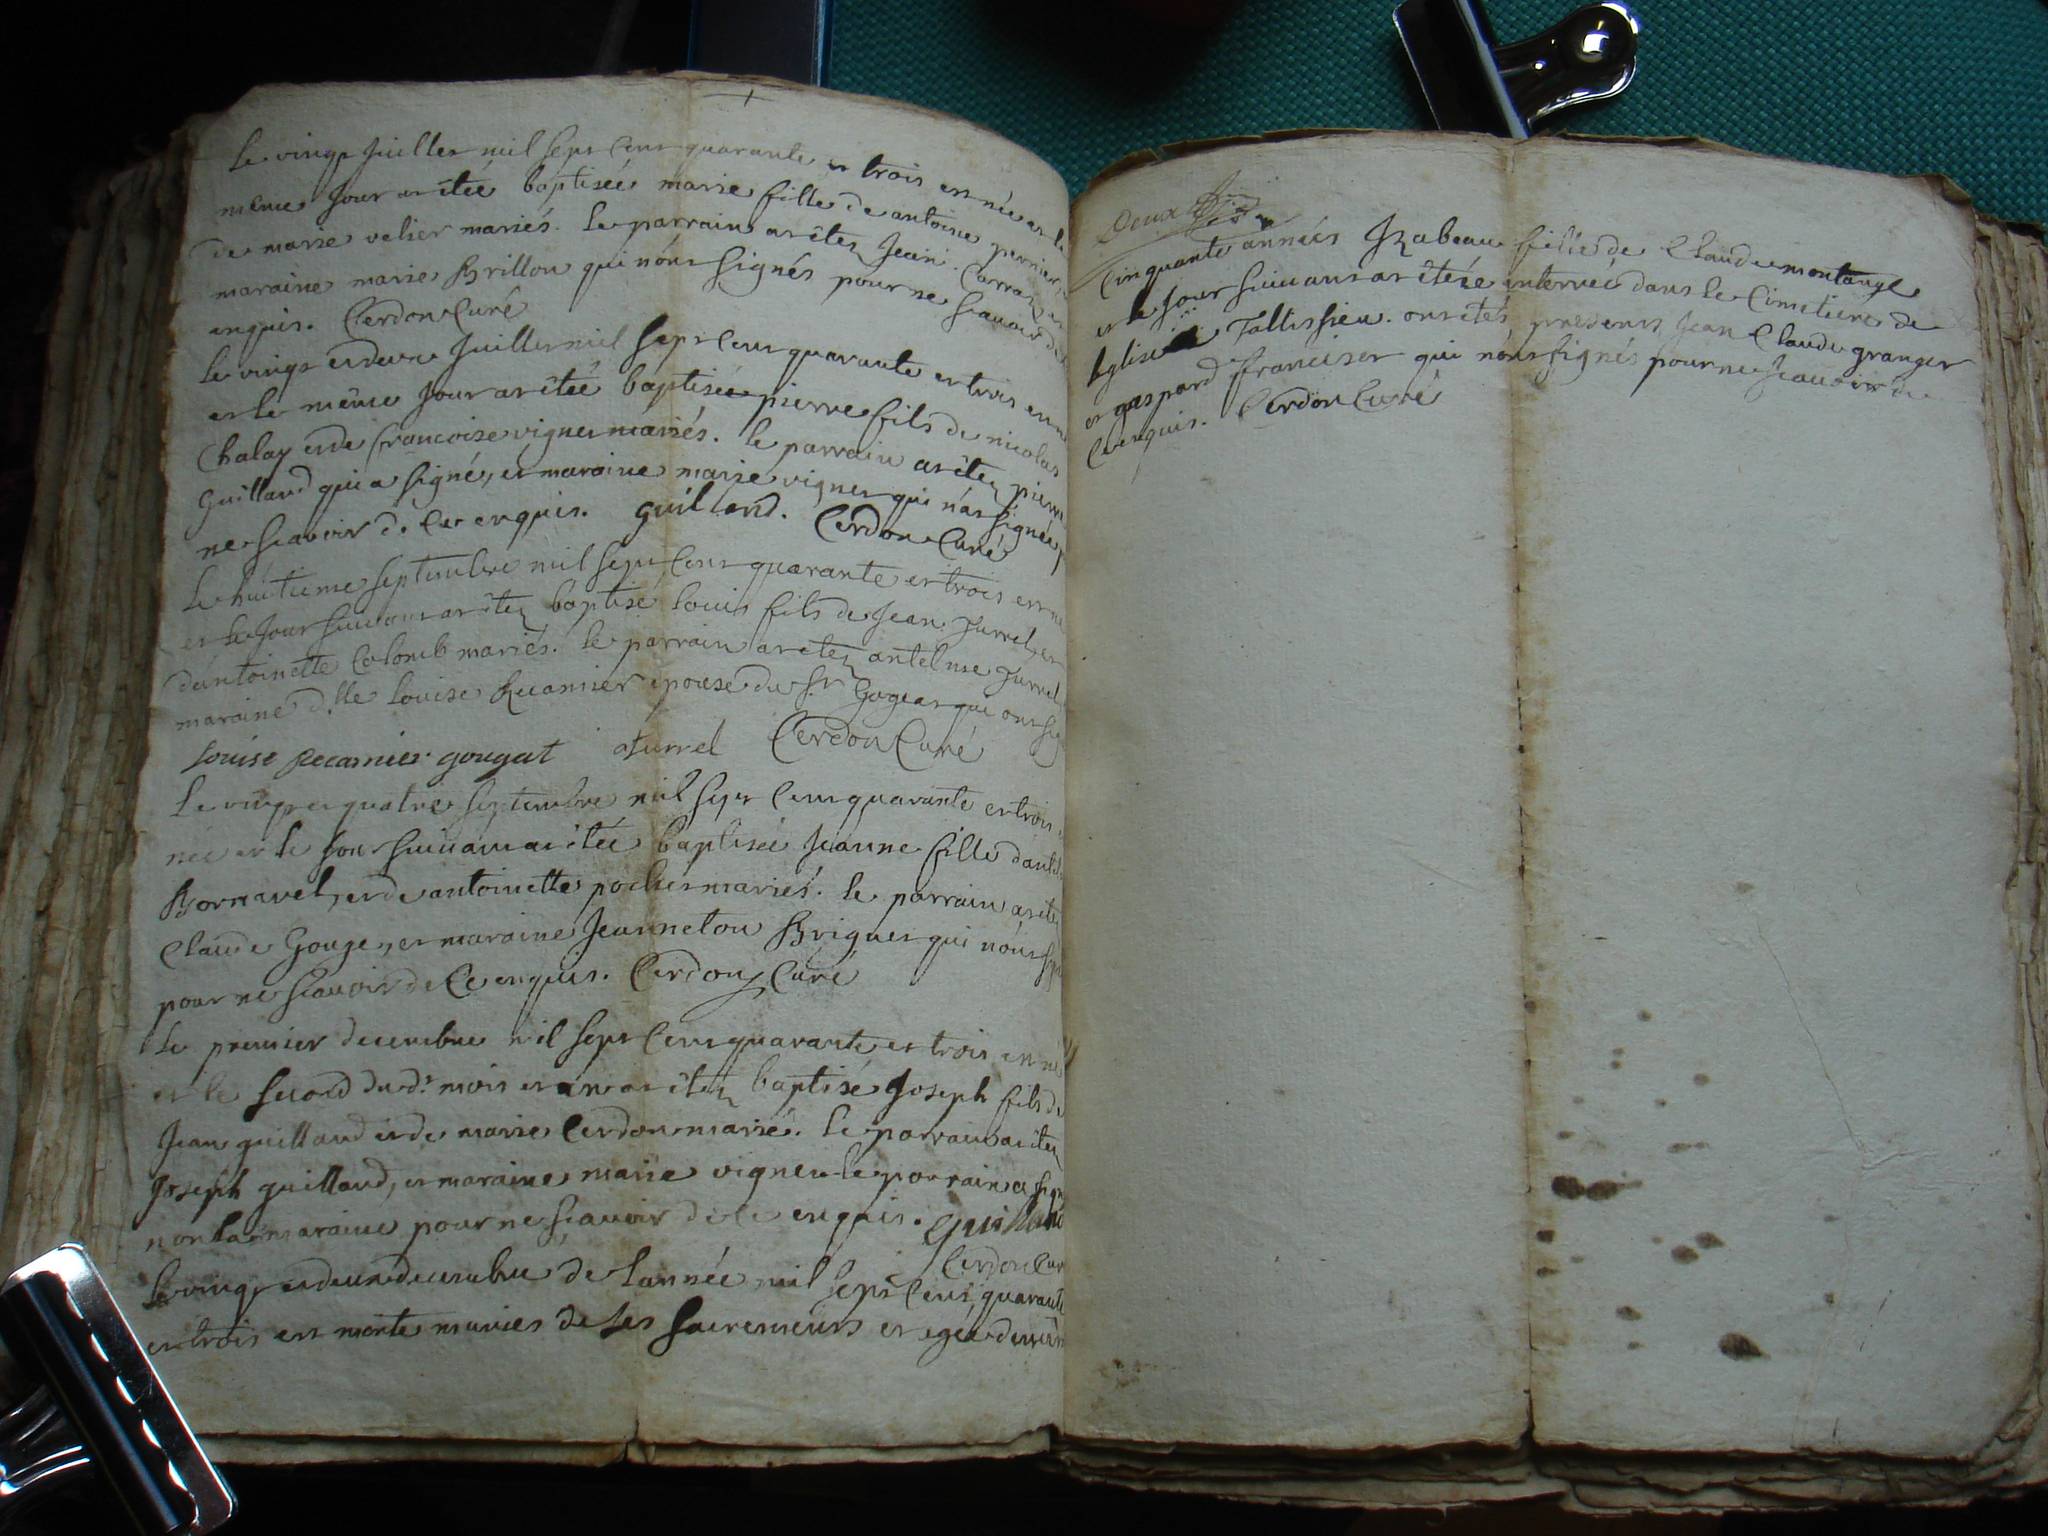 Le vingt Juillet mil sept Cent quarante et trois est née et le
meme Jour at êtéé baptiseé marie fille de antoine perrier
de marie velier mariés. Le parrain at êtez Jean Carraz et
maraine marie Brillon qui n'ont signés pour ne scavoir de
enquis. Cerdon Curé
Le vingt et deux Juillet mil sept Cent quarante et trois est né
et le même Jour at êteé baptisée pierre fils de nicolas
Chalay et de francoise vignet mariés. le parrain at êtez pierre
Guilland qui a signé, et maraine marie vignet qui n'at signée p
ne scavoir de Ce enquis. guilland. Cerdon Curé
Le huitieme septembre mil sept Cent quarante et trois est né
et le Jour suivant at êtez baptisé louis fils de Jean Jurrel, et
d'antoinette Colomb mariés. le parrain at etez antelme Jurrel
maraine d.lle louise Recamier epouse du Sr Gogeat qui ont sig
Louise Recamier gougat aJurrel Cerdon Curé
Le vingt et quatre septembre mil sept Cent quarante et trois
née et le Jour suivant at êtéé baptiseé Jeanne fille d'antel
Bornavel, et de antoinette pochet mariés. le parrain at êtez
Claude Gouge, et maraine Jeanneton Briguet qui n'ont sign
pour ne scavoir de Ce enquis. Cerdon Curé
Le premier decembre mil sept Cent quarante et trois est né
et le second du dt mois et an at êtez baptisé Joseph fils de
Jean guilland et de marie Cerdon mariés. le parrain at êtez
Joseph guilland, et maraine marie vignet le parrain a signé
non la maraine pour ne scavoir de ce enquis. Guilland
Cerdon Curé
Le vingt et deux decembre de l'année mil sept Cent quarante
et trois est morte munies de ses sacrements et agée d'environ
Deux
Cinquante années Izabeau fille de Claude montange
et le Jour suivant at êtéée enterreé dans le Cimetiere de
Eglise Tallissieu. ont etés presents Jean Claude granger
et gaspard franciset qui n'ont signés pour ne scavoir de
Ce enquis. Cerdon Curé